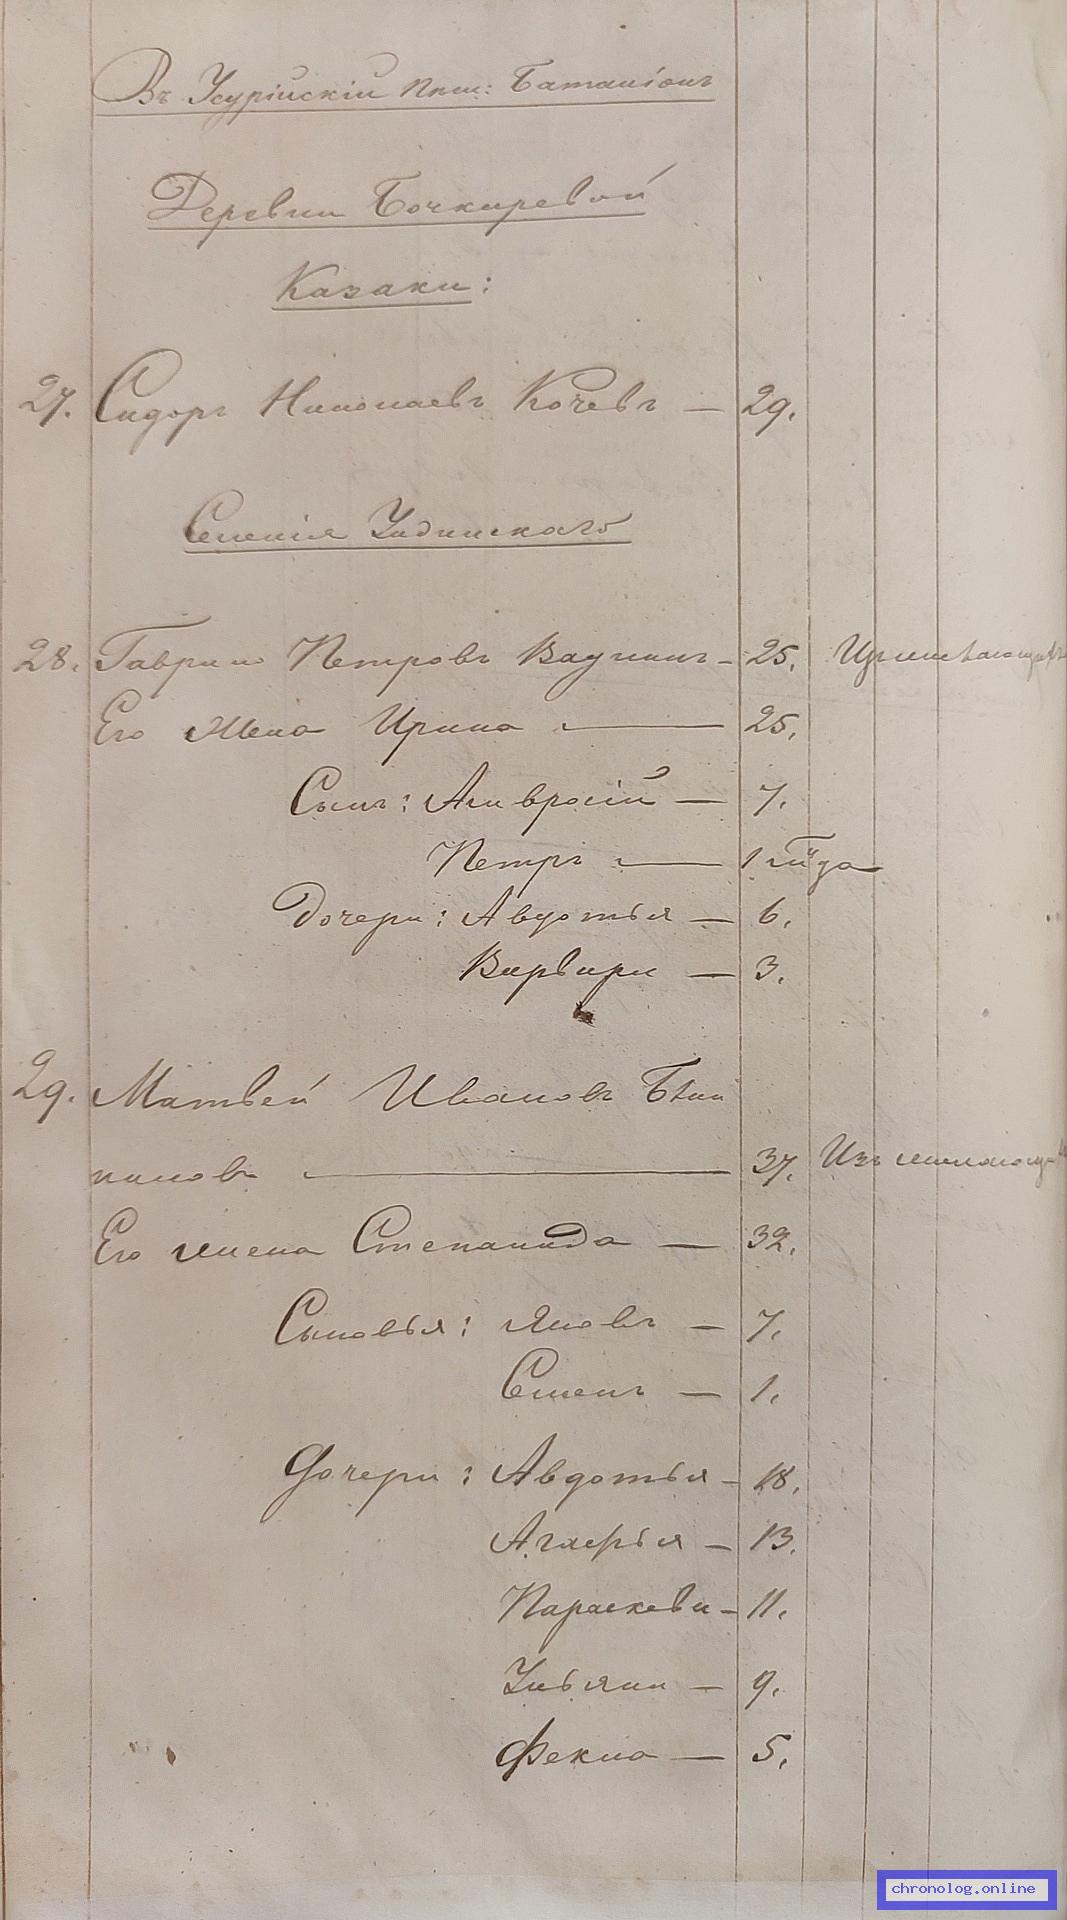 Въ Усурійскій пѣш: Баталіонъ
Деревни Бочкаревой
Казаки:
27. Сидоръ Николаевъ Кочевъ — 29.
Селенія Ундинскаго
28. Гаврило Петровъ Ваулинъ — 25.
Его жена Ирина — 25.
Сынъ: Амвросій — 7.
Петръ — 1 года
Дочери: Авдотья — 6.
Варвара — 3.
29. Матвей Ивановъ
— 37. Изъ
Его жена Степанида — 32.
Сыновья: Яковъ — 7.
Семенъ — 1.
Дочери: Авдотья — 18.
— 13.
Параскева — 11.
Ульяна — 9.
Фекла — 5.
chronolog.online